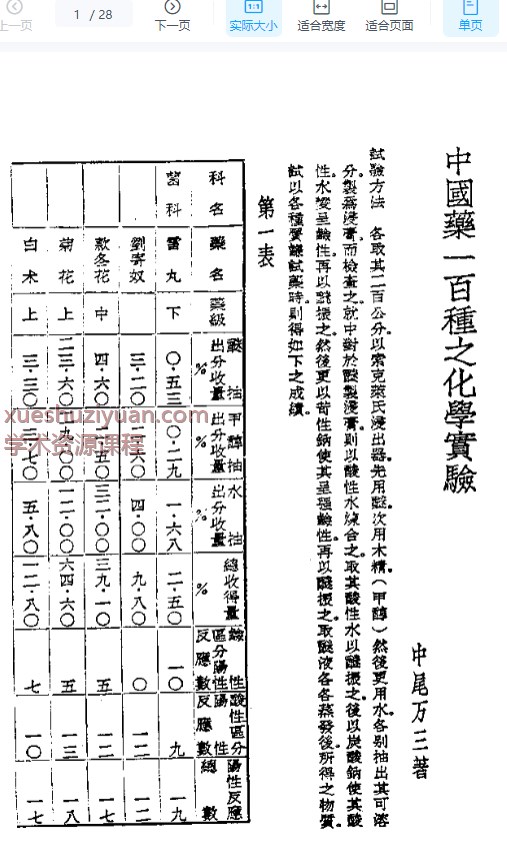 上一页
1 / 28
下一页
实际大小
适合宽度
适合页面
单页
中國藥一百種之化學實驗
中尾万三著
試驗方法　各取其二百公分以索克萊氏浸出器。先用醚。次用木精（甲醇）然後更用水。各別抽出其可溶
分。製爲浸膏。而檢查之。就中對於醚製浸膏。則以酸性水煉合之。取其酸性水以醚振之。後以炭酸鈉使其酸
性水變呈鹼性。再以醚振之。然後更以苛性鈉使其呈强鹼性。再以醚振之。取醚液各各蒸發後。所得之物質。
試以各種贋鹼試藥時。則得如下之成績。
第一表
科名 藥名 藥級 醚抽出分收量% 甲醇抽出分收量% 水抽出分收量% 總收得量% 鹼性區分陽性反應數 酸性區分陽性反應數 陽性反應總數
菌科 雷丸 下 〇・五三 〇・二九 一・六八 二・五〇 一〇 九 一九
劉寄奴 三・二〇 二・六〇 四・〇〇 九・八〇 〇 一二 一二
款冬花 中 四・六〇 二・五〇 三二・〇〇 三九・一〇 五 一二 一七
菊花 上 二三・六〇 二九・〇〇 一二・〇〇 六四・六〇 五 一三 一八
白术 上 三・三〇 三・七〇 五・八〇 一二・八〇 七 一〇 一七
xueshuziyuan.com
学术资源课程